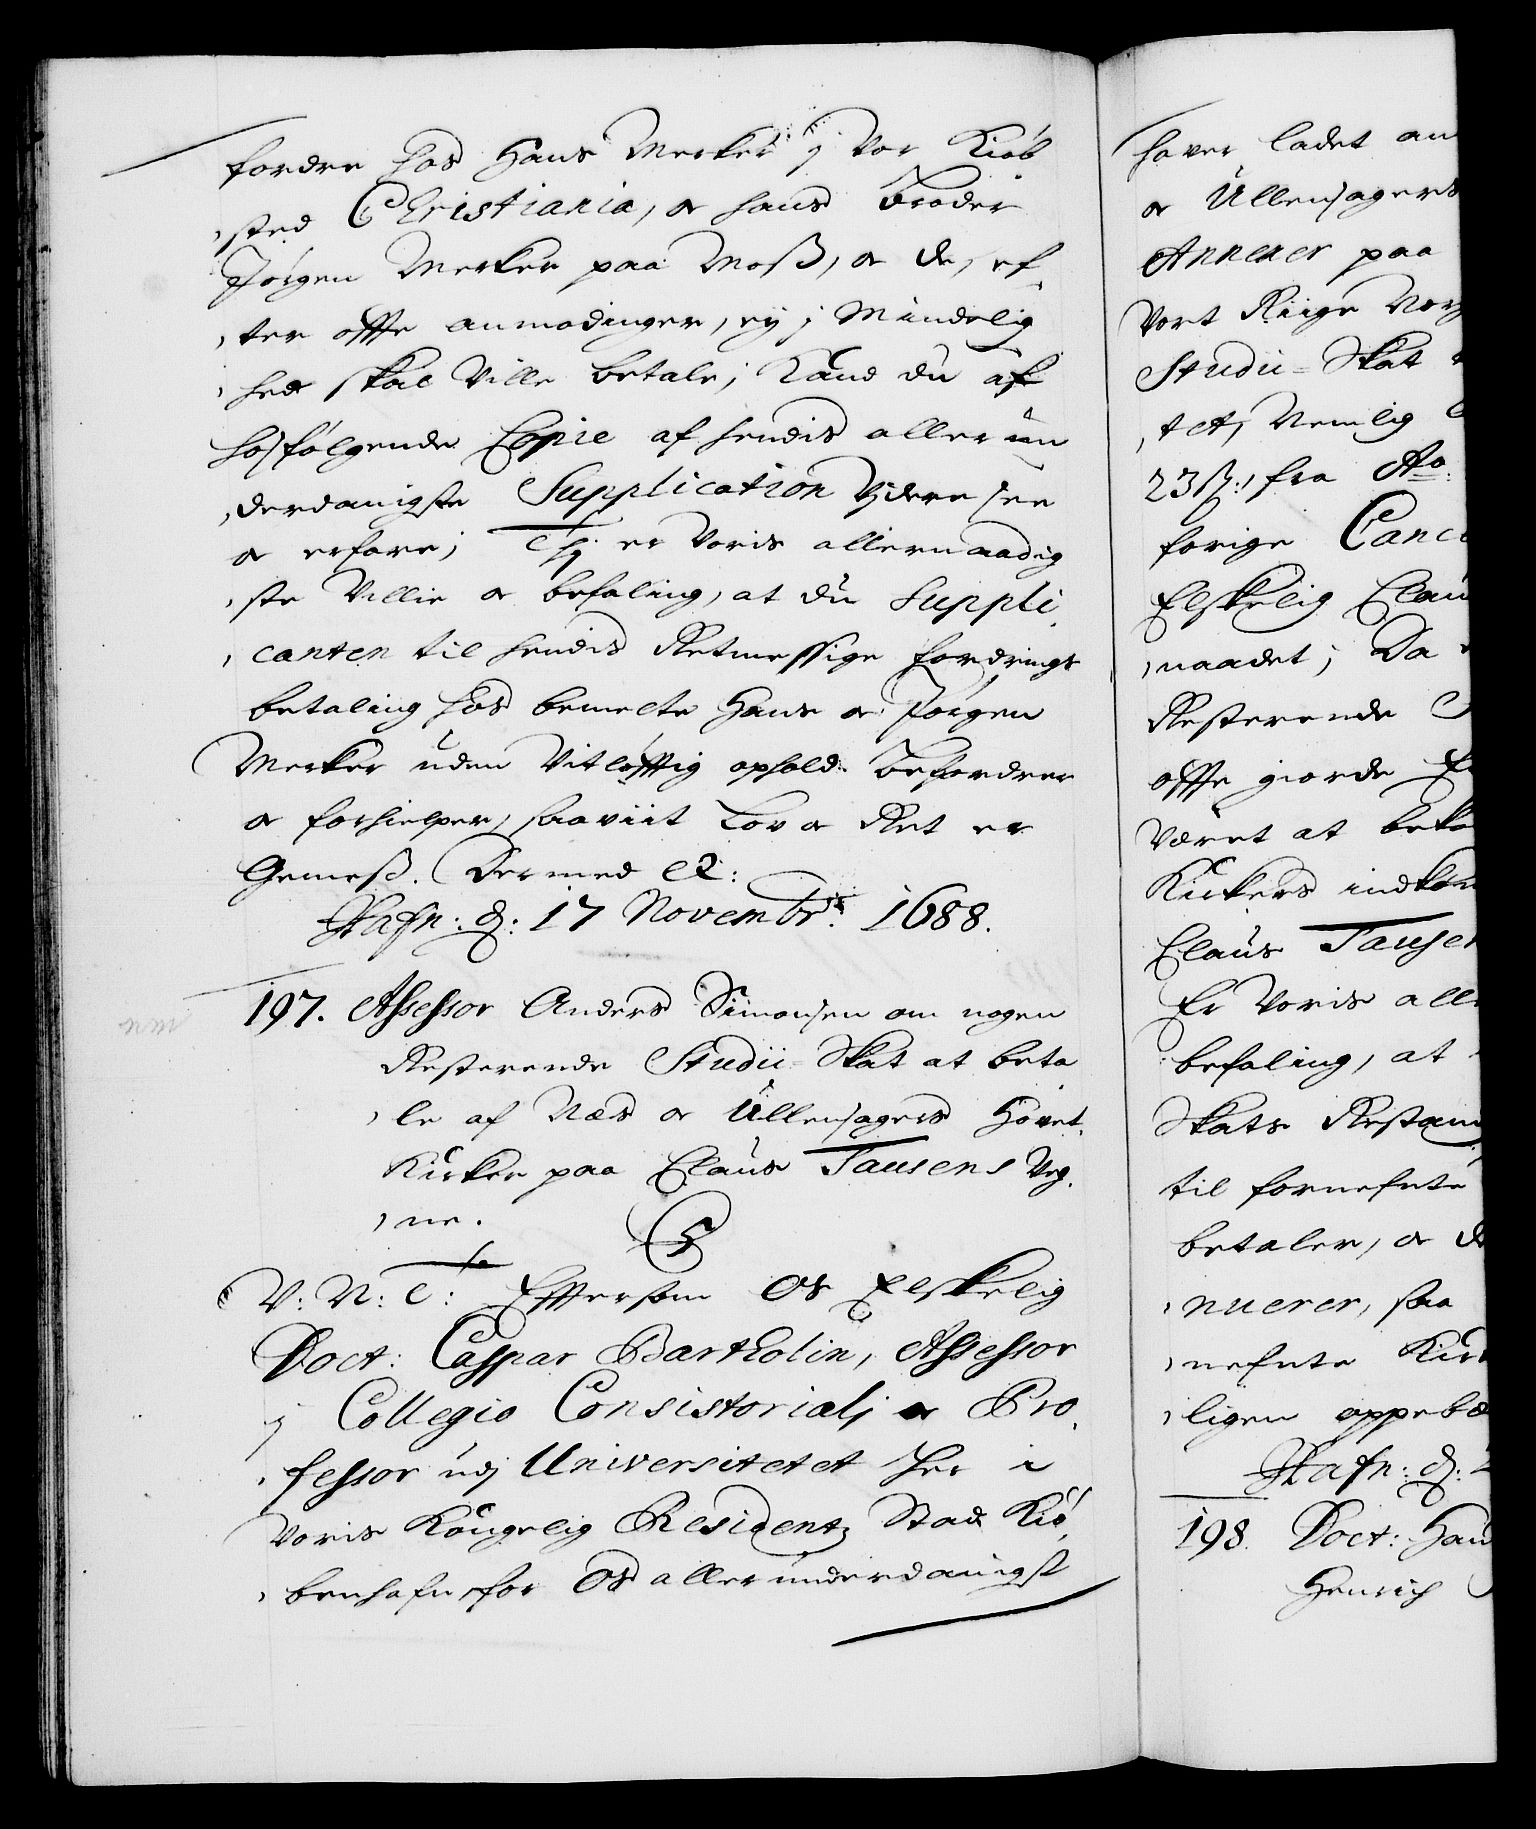 fordre hos Hans Mercker j Vor Kiøb
sted Christiania, oc hans Broder
Jørgen Mercker paa Moss, oc de, ef,
,ter offte anmodinger, ej j Mindelig
,hed skal Ville betale; Kand du af
hosfølgende Copie af hendis allerun
,derdanigste Supplication Vjdere see
oc erfare; Thj er Voris allernaadig
,ste Villie oc befaling, at du Suppli,
,canten til hendis Retmessige fordrings
betaling hos bemelte Hans oc Jørgen
Mercker uden Vitløfftig ophold befordrer
oc forhielper, saaviit Lov oc Ret er
Gemess. Dermed etc:
Hafn: d: 17 Novembr: 1688.
197. Assessor Anders Simonsen om nogen
Resterende Studii-Skat at beta
,le af Næs oc Ullensagers Hovet,
Kircker paa Claus Tausens Veg,
,ne.
V: N: T: Eftersom Os Elskelig
Doct: Caspar Bartholin, Assessor
j Collegio Consistorialj oc Pro,
,fessor udj Universitetet her i
Voris Kongelig Residentz Stad Kiø,
,benhafn, for Os allerunderdanigst
hafver ladet an
oc Ullensagers
Annexer paa
Vort Riige Norg
Studii-Skat
,tet, Nemlig
23 ß:, fra Ao:
forige Canc
Elskelig Clau
,naadet; Da
Resterende
offte giorde
Været at beko
Kirckers indkom
Claus Tausen
Er Voris alle
befaling, at
Skats Restan
til fornefnte
betaler, oc
,nuerer, saa
,nefnte Kir
,ligen oppebæ
Hafn: d: 2
198. Doct: Han
Henrich